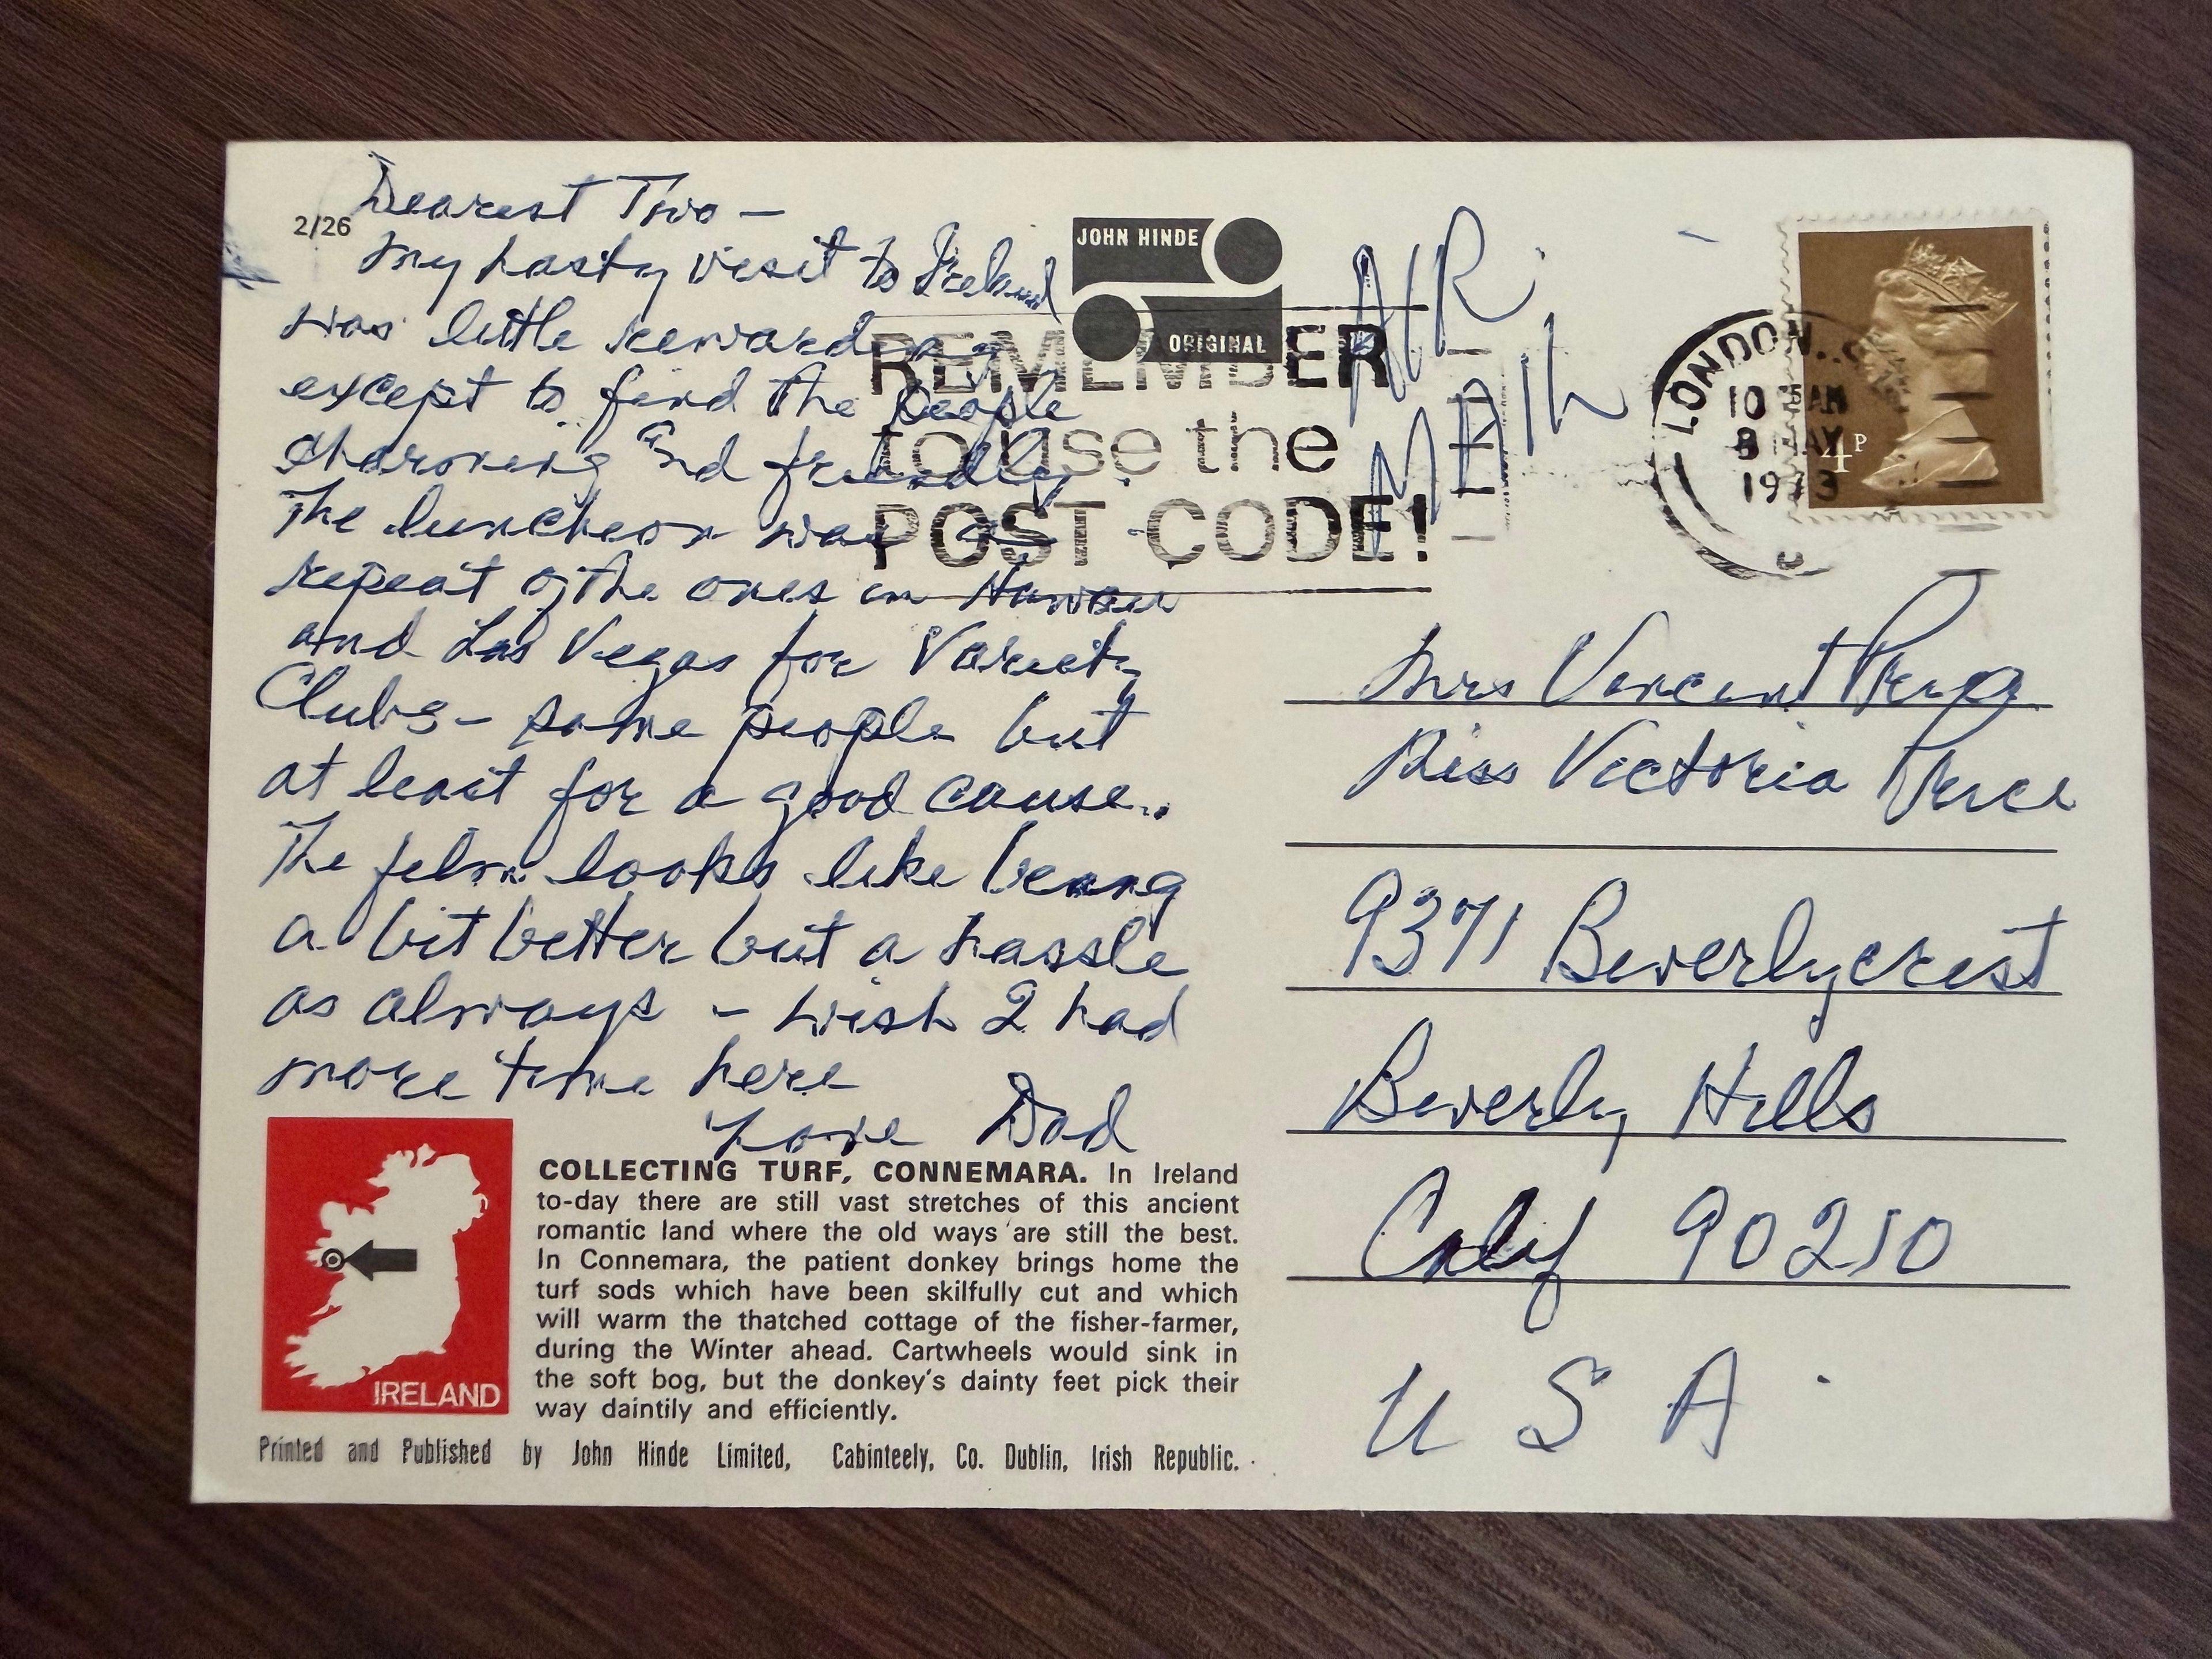 2/26
Dearest Two –
My hasty visit to Ireland
was little rewarding
except to find the people
charming and friendly
The luncheon was a
repeat of the ones in Hawaii
and Las Vegas for Variety
Clubs – same people but
at least for a good cause..
The film looks like being
a bit better but a hassle
as always – wish I had
more time here
Love Dad
COLLECTING TURF, CONNEMARA. In Ireland
to-day there are still vast stretches of this ancient
romantic land where the old ways are still the best.
In Connemara, the patient donkey brings home the
turf sods which have been skilfully cut and which
will warm the thatched cottage of the fisher-farmer,
during the Winter ahead. Cartwheels would sink in
the soft bog, but the donkey's dainty feet pick their
way daintily and efficiently.
IRELAND
Printed and Published by John Hinde Limited, Cabinteely, Co. Dublin, Irish Republic.
JOHN HINDE
ORIGINAL
REMEMBER
to use the
POST CODE!
AIR
MAIL
LONDON
10 AM
8 MAY
1973
4P
Mrs Vincent Price
Miss Victoria Price
9371 Beverlycrest
Beverly Hills
Calif 90210
U S A